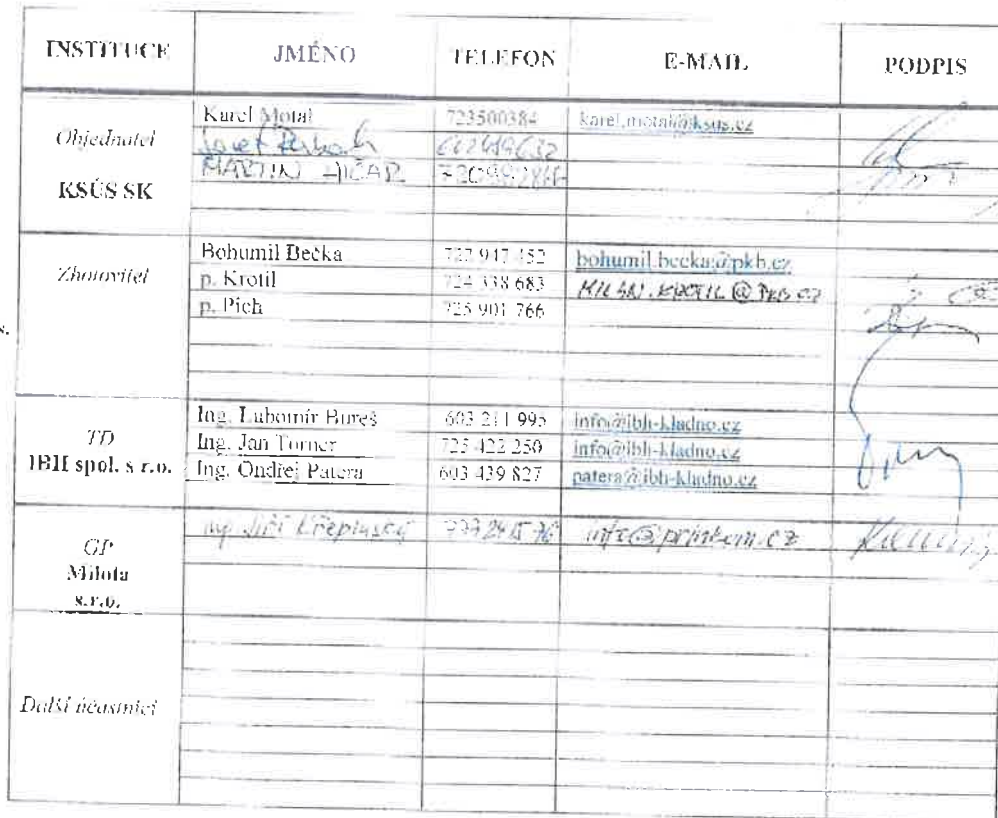 INSTITUCE JMÉNO TELEFON E-MAIL PODPIS
Objednatel
KSÚS SK
Karel Motal 723500384 karel.motal@ksus.cz
MARTIN HIČAR
Zhotovitel
Bohumil Bečka 722 947 452 bohumil.becka@pkb.cz
p. Krotil 724 338 683 MILAN.KROTIL@PKB.CZ
p. Pich 725 901 766
s.
TD
IBH spol. s r.o.
Ing. Lubomír Bureš 603 211 995 info@ibh-kladno.cz
Ing. Jan Torner 725 422 250 info@ibh-kladno.cz
Ing. Ondřej Patera 603 439 827 patera@ibh-kladno.cz
GP
Milota
s.r.o.
Jiří Křepinský
Další účastníci